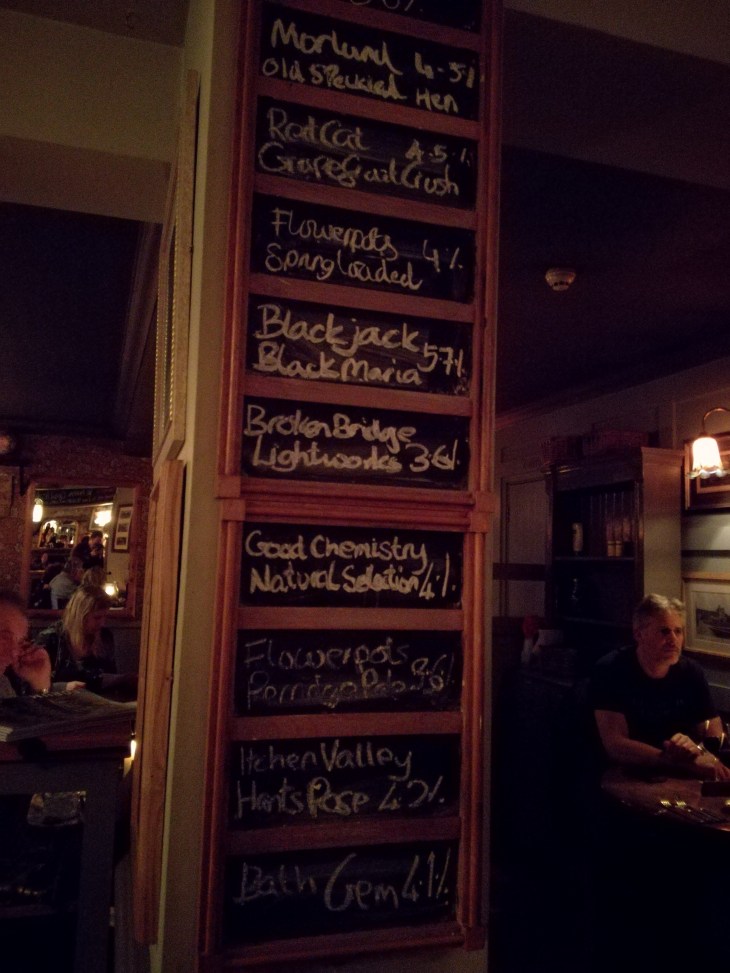 Morland 4.5%
Old Speckled Hen
Red Cat 4.5%
Grapefruit Crush
Flowerpots 4%
Spring Loaded
Blackjack 5.7%
Black Maria
Broken Bridge
Lightworks 3.6%
Good Chemistry
Natural Selection 4%
Flowerpots 3.6%
Perridge Pale
Itchen Valley
Hants Rose 4.2%
Bath Gem 4.1%